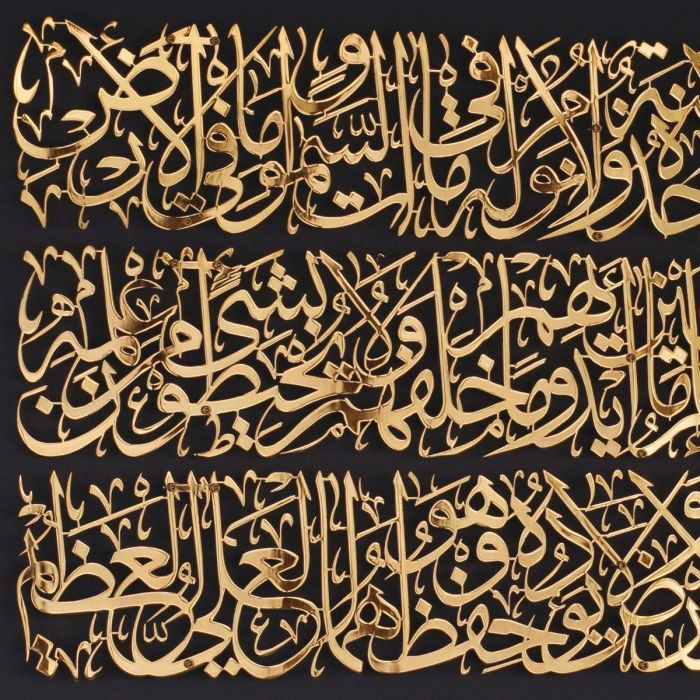 ولا نوم له ما في السموات وما في الأرض
ما بين أيديهم وما خلفهم ولا يحيطون بشيء من علمه
ولا يؤده حفظهما وهو العلي العظيم